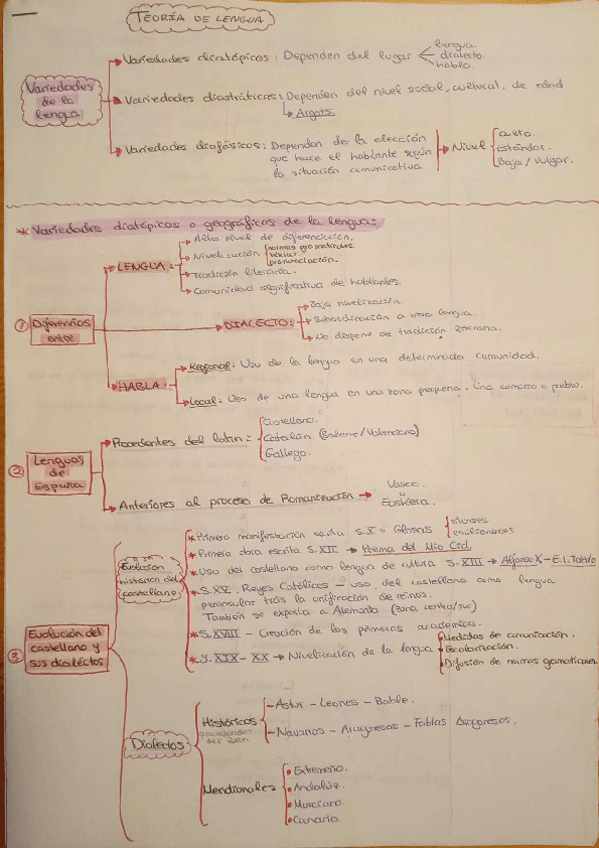 TEORÍA DE LENGUA
Variedades de la lengua
Variedades diatópicas: Dependen del lugar
lengua.
dialecto.
habla.
Variedades diastráticas: Dependen del nivel social, cultural, de edad
Argots.
Variedades diafásicas: Dependen de la elección
que hace el hablante según
la situación comunicativa
Nivel
Culto.
Estándar.
Baja / Vulgar.
* Variedades diatópicas o geográficas de la lengua:
① Diferencias entre
LENGUA
Alto nivel de diferenciación.
Nivelización
normas gramaticales.
léxico
pronunciación.
Tradición literaria.
Comunidad significativa de hablantes.
DIALECTO:
Baja nivelización.
Subordinación a otra lengua.
No dispone de tradición literaria.
HABLA
Regional: Uso de la lengua en una determinada comunidad.
Local: Uso de una lengua en una zona pequeña. Una comarca o pueblo.
② Lenguas de España
Procedentes del latín =
Castellano.
Catalán (Balear / Valenciano)
Gallego.
Anteriores al proceso de Romanización
Vasco
o
Euskera.
③ Evolución del castellano y sus dialectos
Evolución histórica del castellano
* Primera manifestación escrita S.X = Glosas
silenses
emilianenses
* Primera obra escrita S.XII → Poema del Mio Cid.
* Uso del castellano como lengua de cultura S.XIII → Alfonso X - E.T. Toledo
* S.XV. Reyes Católicos - uso del castellano como lengua
peninsular trás la unificación de reinos.
También se exporta a (zona centro/sur)
* S.XVIII - Creación de las primeras academias.
* S.XIX - XX → Nivelización de la lengua
Medidas de comunicación.
Escolarización.
Difusión de normas gramaticales
Dialectos
Históricos
procedentes del latín
- Astur - Leonés - Bable.
- Navarros - Aragoneses - Fablas Aragonesas.
Meridionales
Extremeño.
Andaluz.
Murciano.
Canario